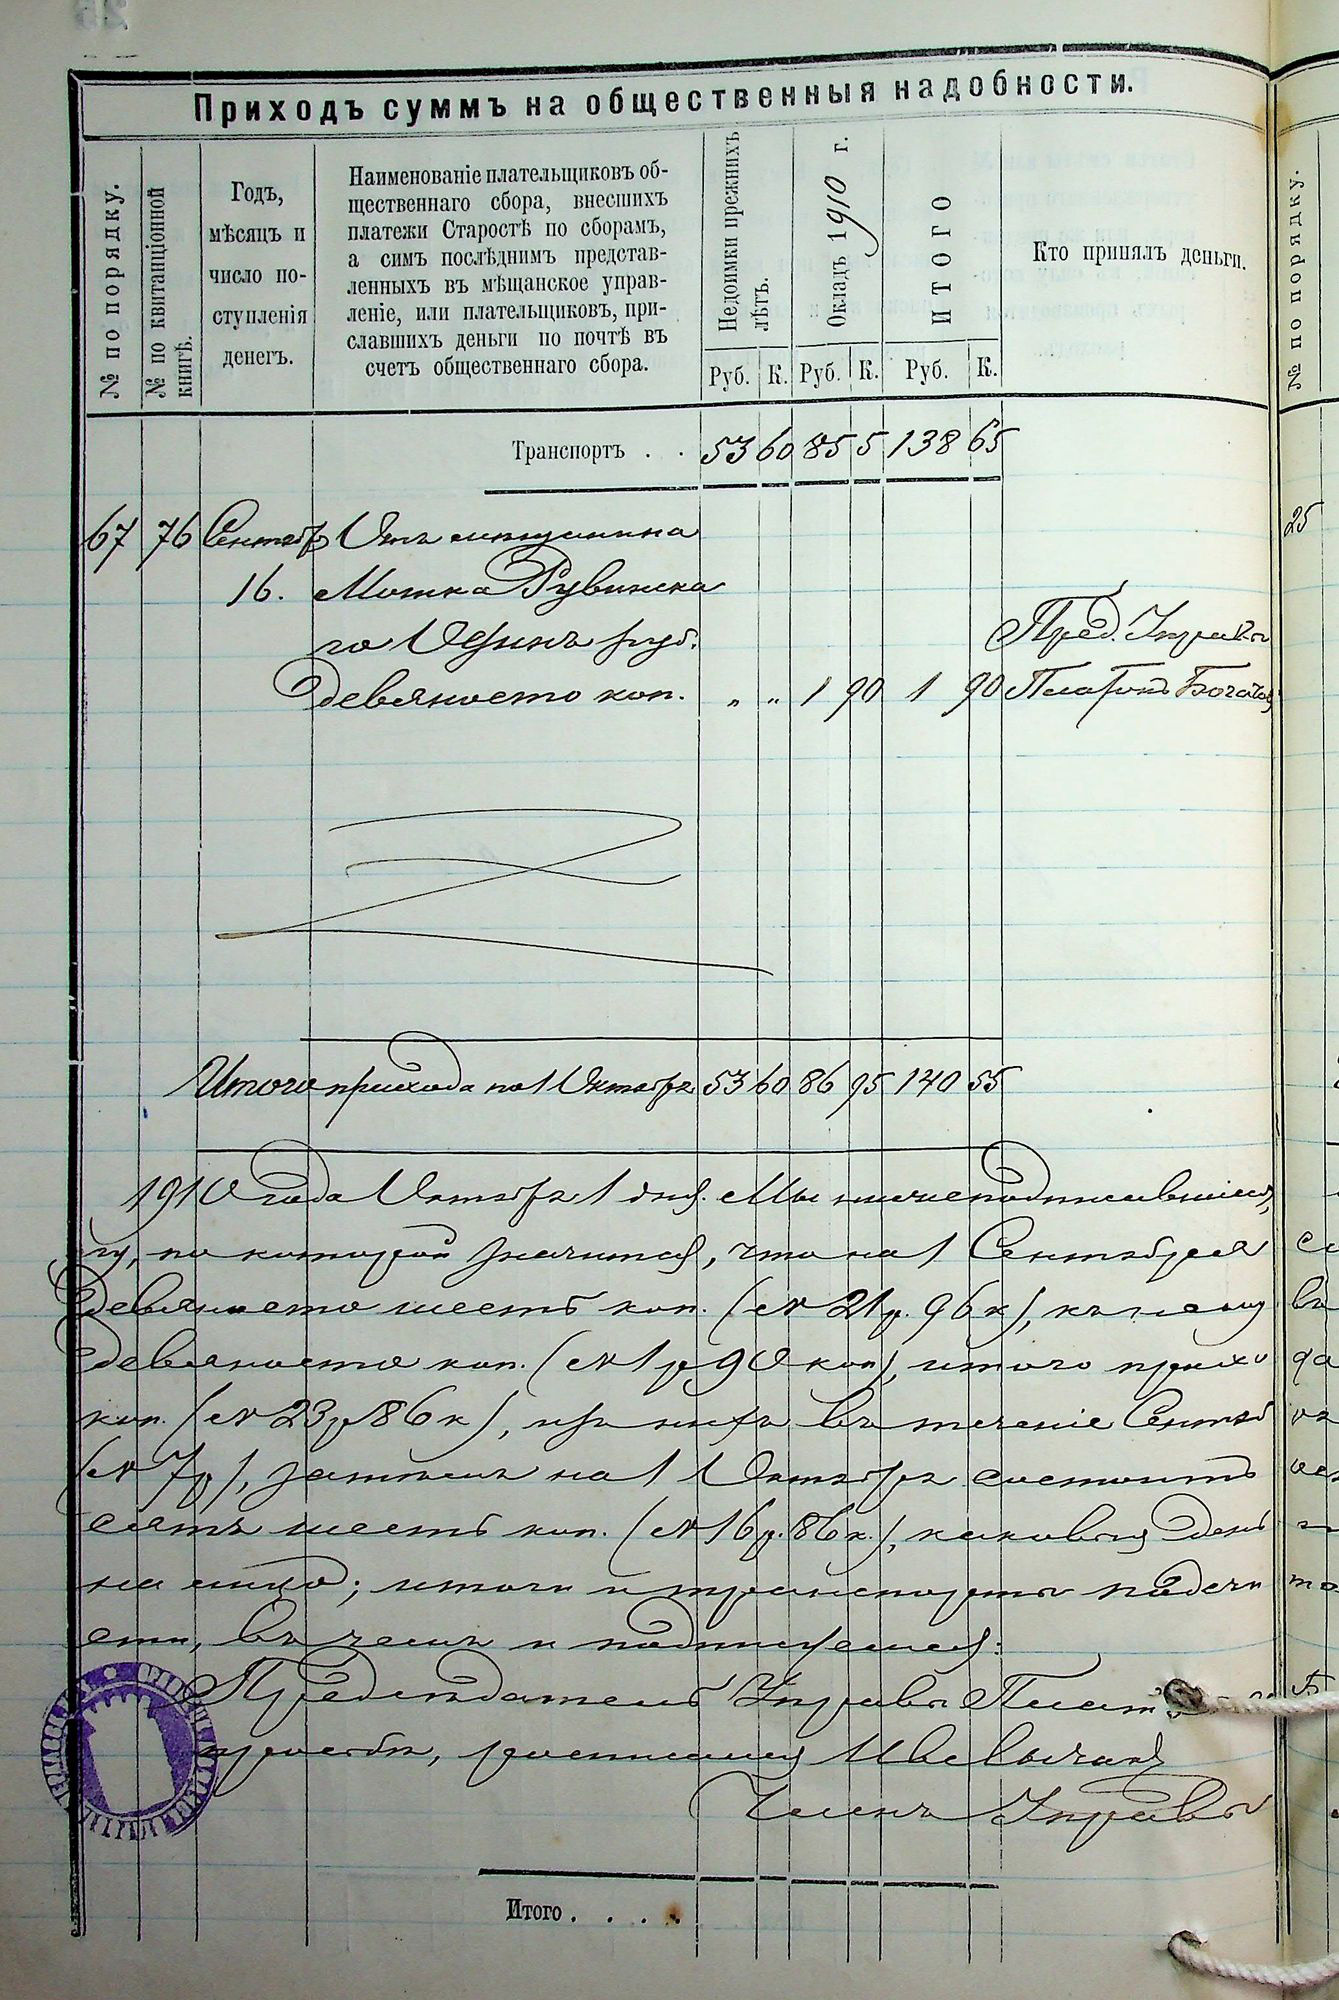 Приходъ суммъ на общественныя надобности.
№ по порядку.
№ по квитанціонной
книгѣ.
Годъ,
мѣсяцъ и
число по-
ступленія
денегъ.
Наименованіе плательщиковъ об-
щественнаго сбора, внесшихъ
платежи Старостѣ по сборамъ,
а симъ послѣднимъ представ-
ленныхъ въ мѣщанское управ-
леніе, или плательщиковъ, при-
славшихъ деньги по почтѣ въ
счетъ общественнаго сбора.
Недоимки прежнихъ
лѣтъ.
Окладъ 1910 г.
ИТОГО
Кто принялъ деньги.
Руб. К. Руб. К. Руб. К.
№ по порядку.
Транспортъ . . 53 60 85 5 138 65
67 76 Сентябр Отъ мещанина
25
16. Мошка Рувинска
го Одинъ руб. Пред. Управы
девяносто коп. „ „ 1 90 1 90 Платонъ
Итого прихода по 1 Октября 53 60 86 95 140 55
1910 года Октября 1 дня. Мы нижеподписавшіеся,
гу, по которой значится, что на 1 Сентября
девяносто шесть коп. (№ 21 р. 96 к), къ нему
девяносто коп. (№ 1 р 90 коп), итого прихо
коп. (№ 23 р 86 к), изъ нихъ въ теченіе Сентяб
(№ 7 р), затѣмъ на 1 Октября состоитъ
сятъ шесть коп. (№ 16 р. 86 к.), каковыя день
на лицо; итоги и транспорты подсчи
сти, въ чемъ и подпишемся:
Предсѣдатель Управы Плат
просьбѣ, росписался
Членъ Управы
Итого . . . .